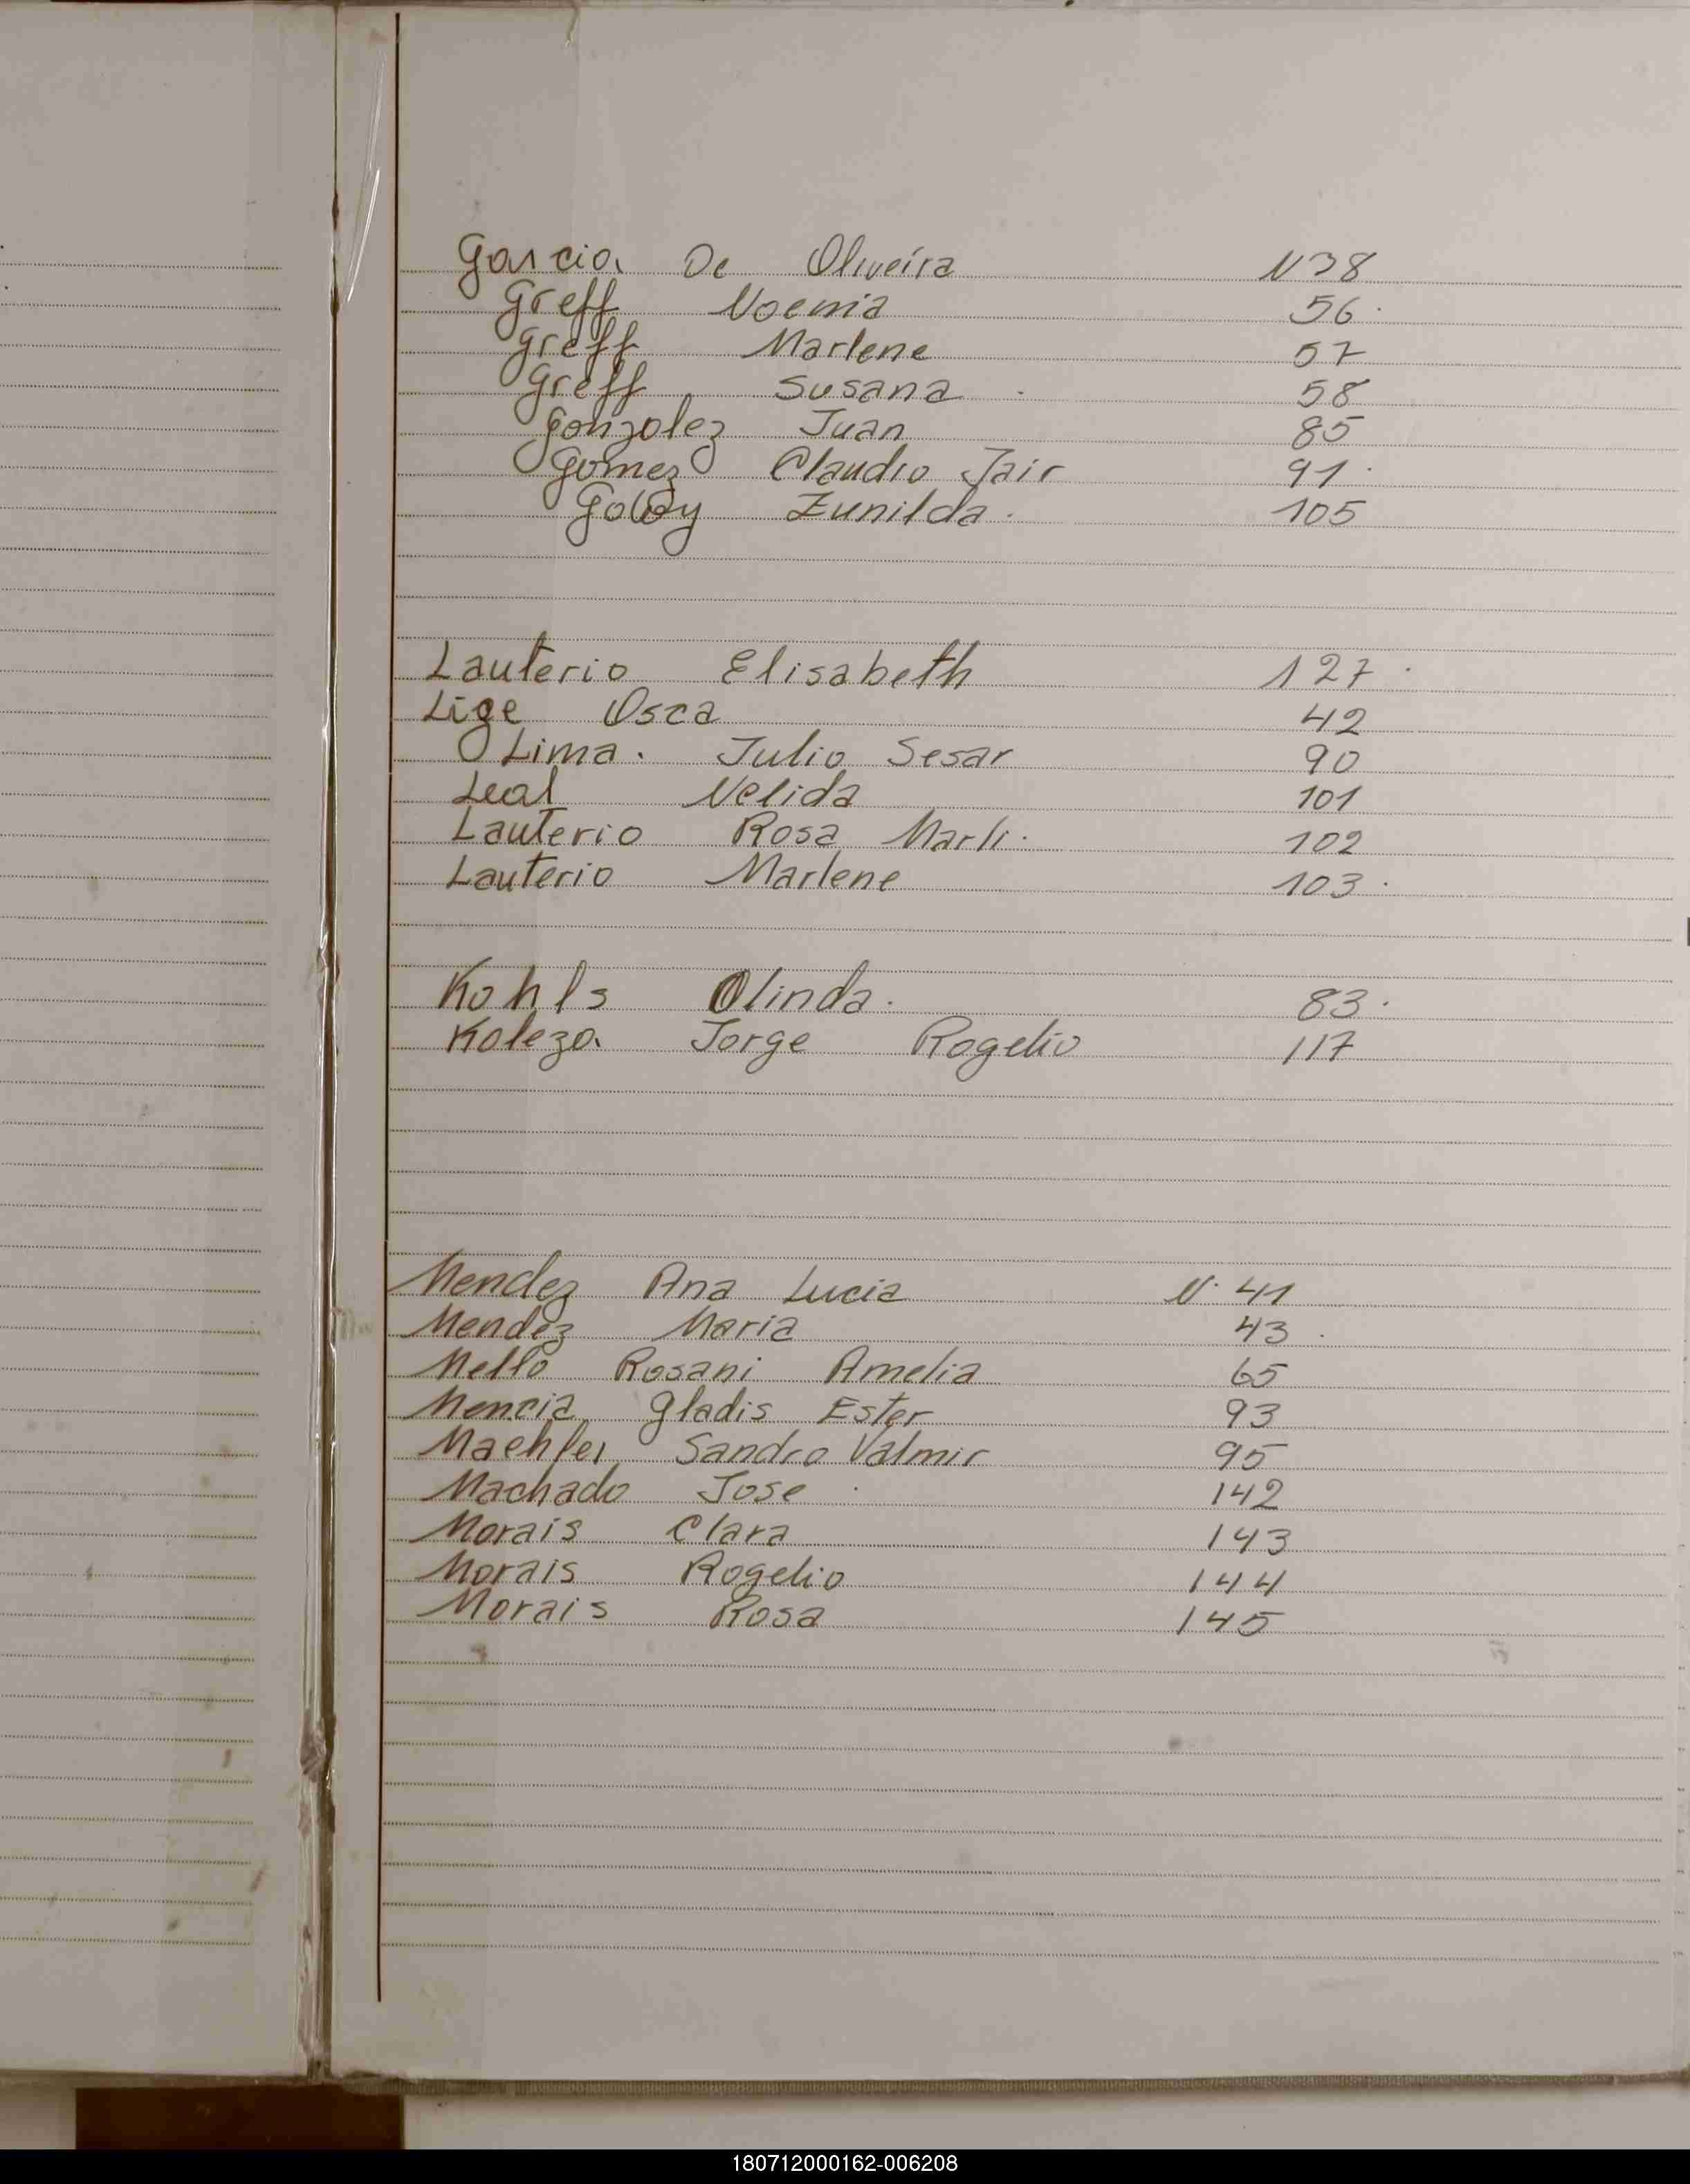 Garcia De Oliveira N 38
Greff Noemia 56.
Greff Marlene 57
Greff Susana . 58
Gonzalez Juan 85
Gomez Claudio Jair 91.
Zunilda. 105
Lauterio Elisabeth 127.
Lige Osca 42
Lima. Julio Sesar 90
Leal Nelida 101
Lauterio Rosa Marli. 102
Lauterio Marlene 103.
Kohls Olinda. 83.
Koleza Jorge Rogelio 117
Mendez Ana Lucia N. 41
Mendez Maria 43.
Mello Rosani Amelia 65
Mencia Gladis Ester 93
Maehler Sandro Valmir 95
Machado Jose . 142
Morais Clara 143
Morais Rogelio 144
Morais Rosa 145
180712000162-006208